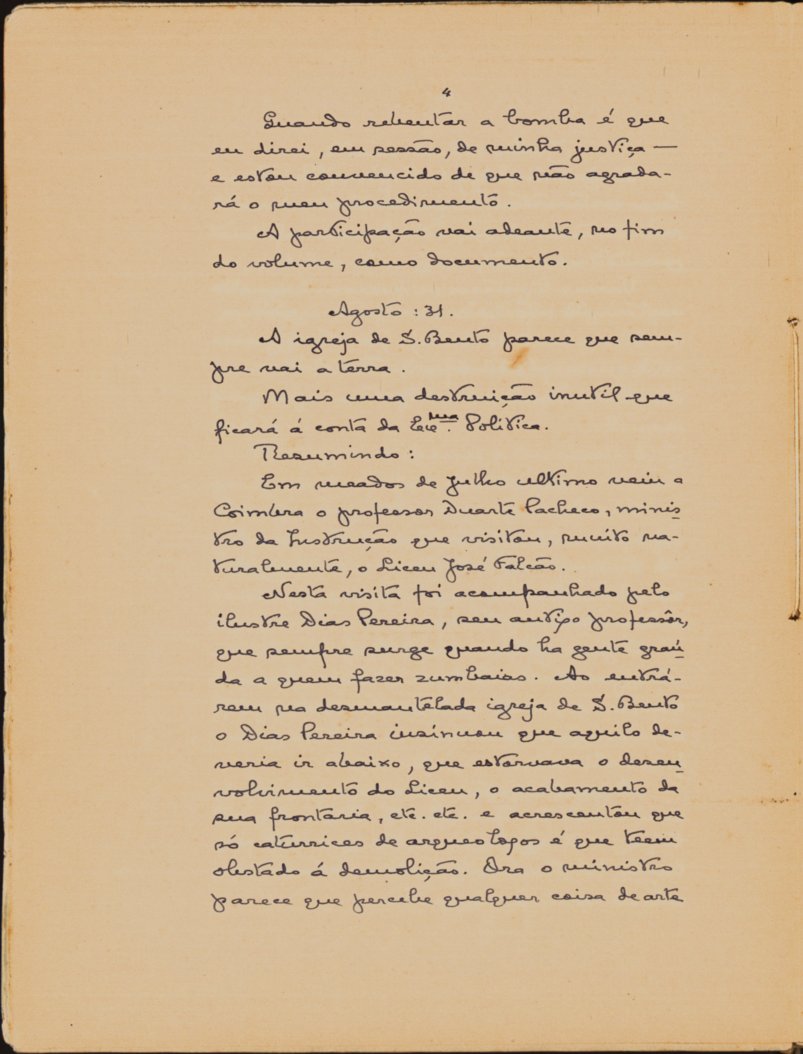 4
Quando rebentar a bomba é que
eu direi, em sessão, de minha justiça —
e estou convencido de que não agrada-
rá o meu procedimento.
A participação vai adeante, no fim
do volume, como documento.
Agosto : 31.
A igreja de S. Bento parece que sem-
pre vai a terra.
Mais uma destruição inutil que
ficará á conta da Politica.
Resumindo :
Em meados de Julho ultimo veiu a
Coimbra o professor Duarte Pacheco, minis-
tro da Instrução que visitou, muito na-
turalmente, o Liceu José Falcão.
Nesta visita foi acompanhado pelo
ilustre Dias Pereira, seu antigo professôr,
que sempre surge quando ha gente graú-
da a quem fazer zumbaias. Ao entrá-
rem na desmantelada igreja de S. Bento
o Dias Pereira insinuou que aquilo de-
veria ir abaixo, que estorvava o desen-
volvimento do Liceu, o acabamento da
sua frontaria, etc. etc. e acrescentou que
só caturrices de arqueologos é que teem
obstado á demolição. Ora o ministro
parece que percebe qualquer coisa de arte